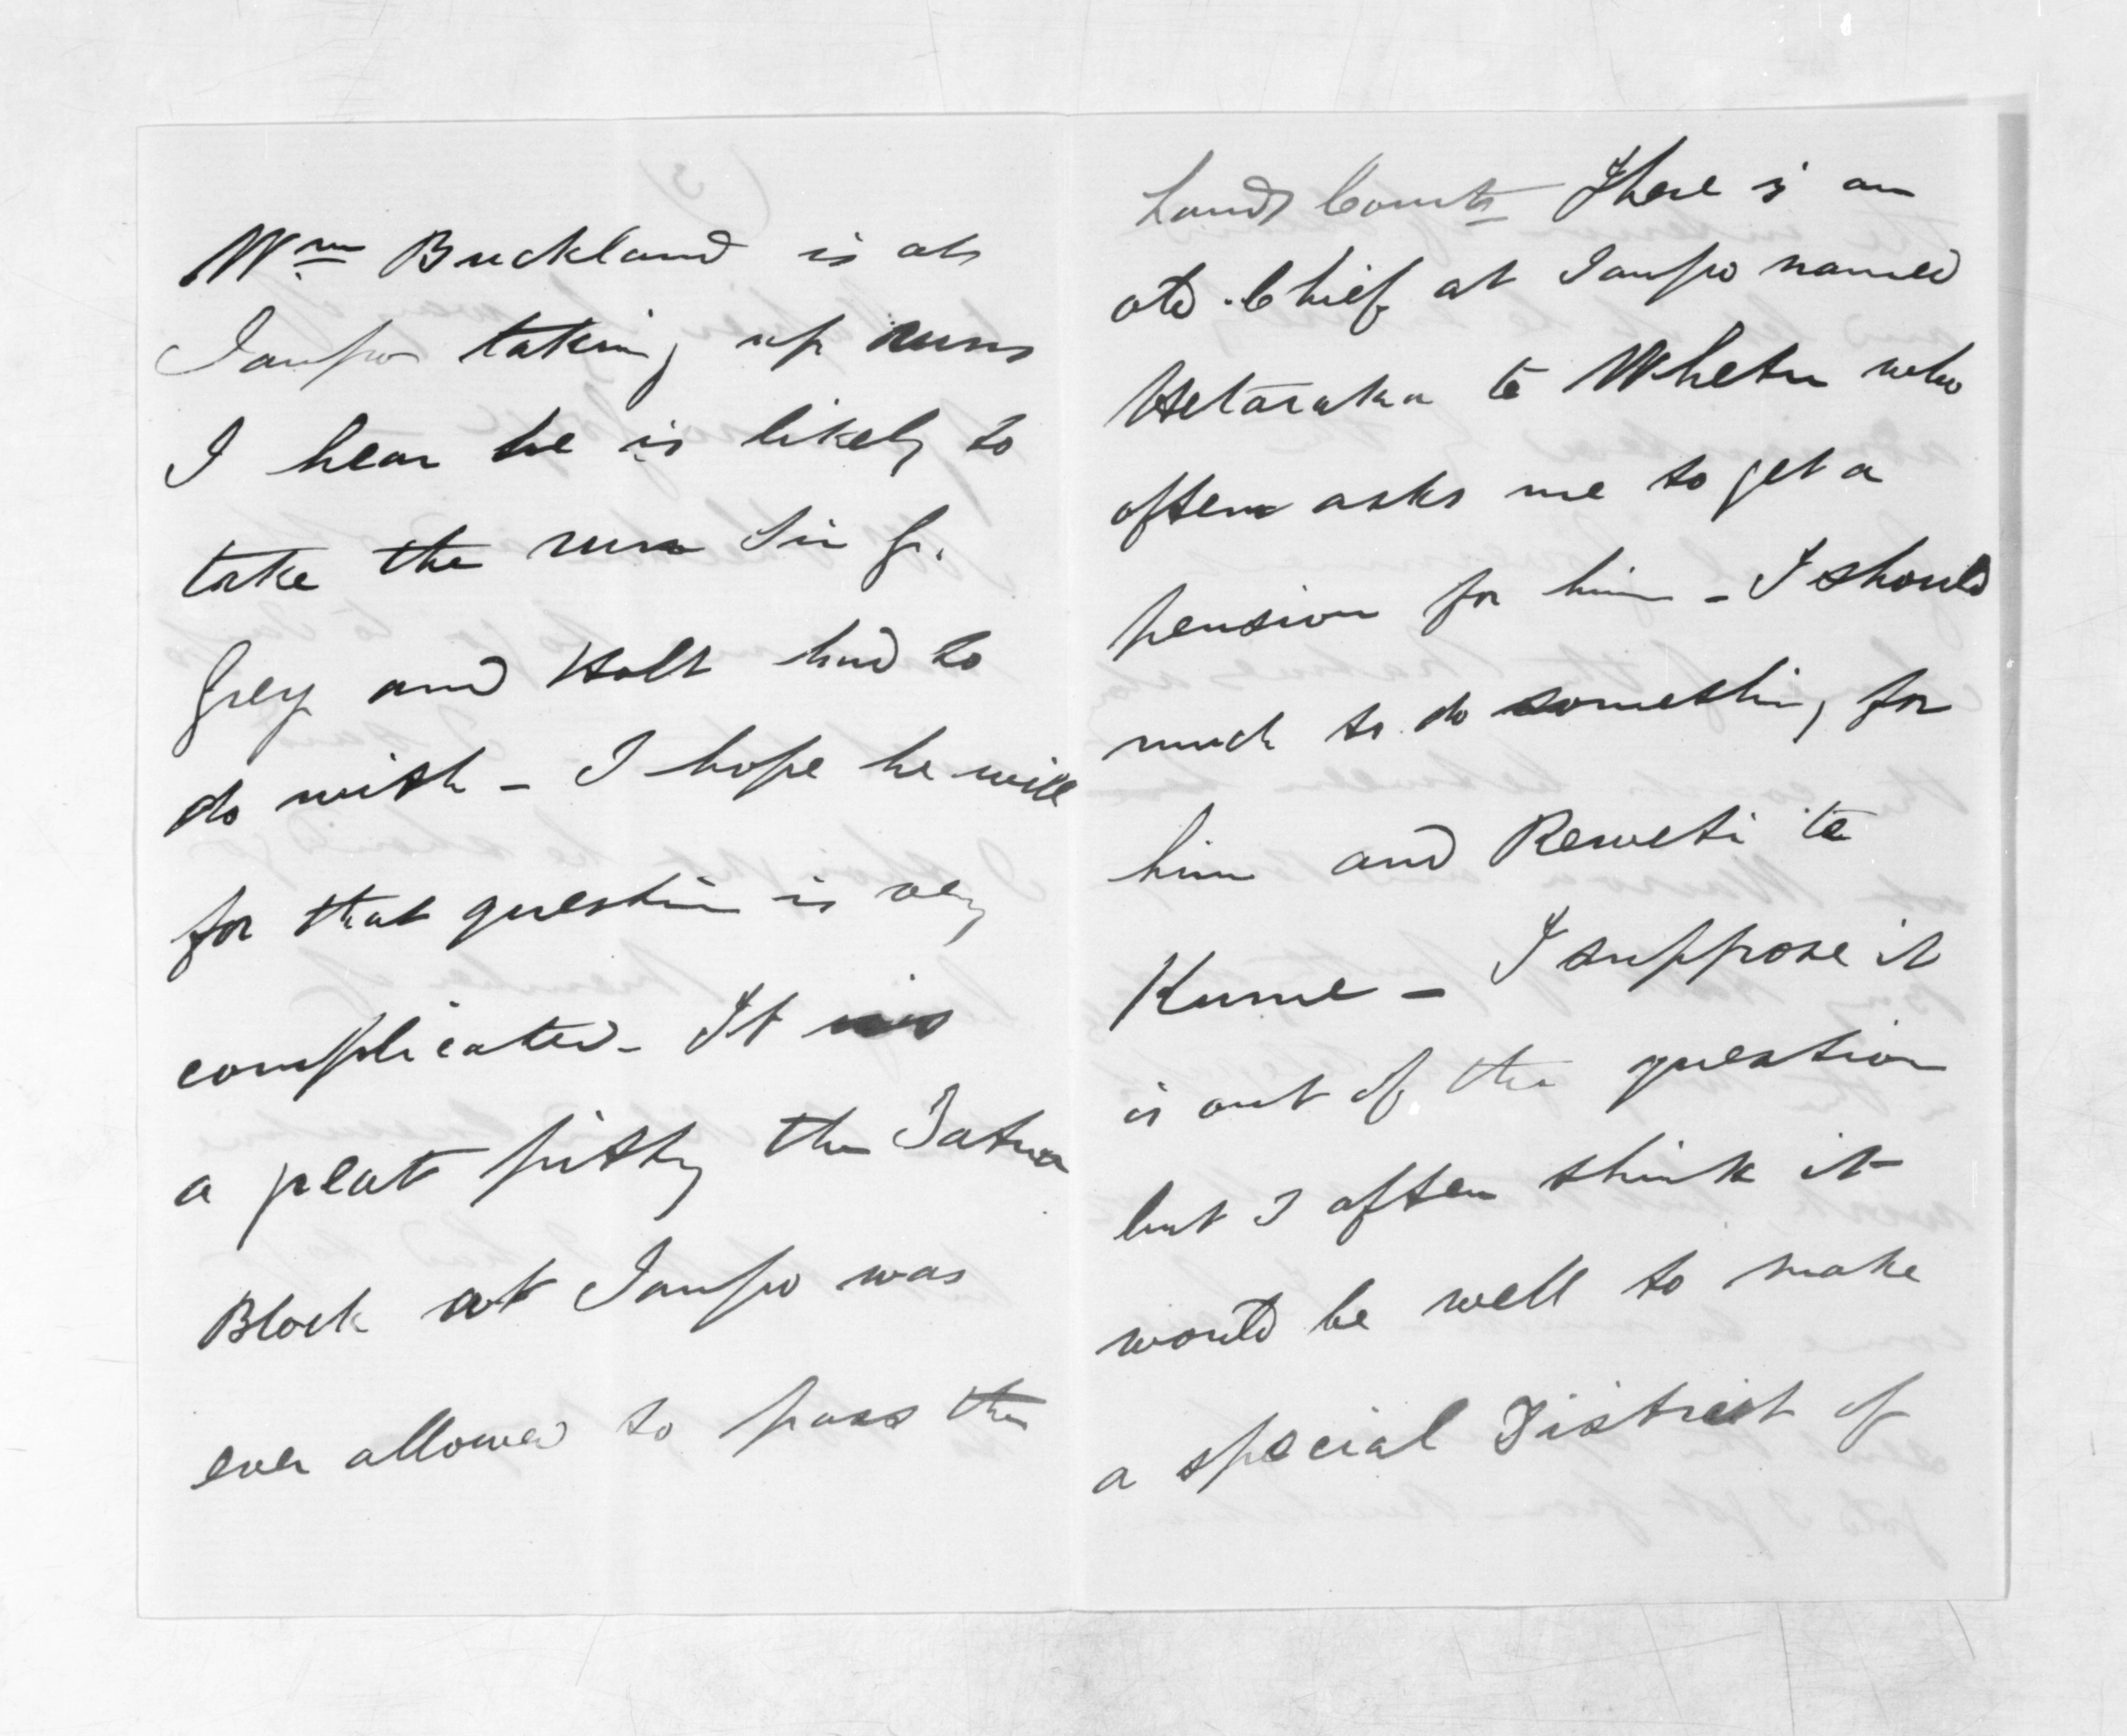 Wm Buckland is at
Taupo taking up runs
I hear he is likely to
take the run Sir G.
Grey and Holt had to
do with – I hope he will
for that question is very
complicated – It is
a great pity the Tatua
Block at Taupo was
ever allowed to pass the
Lands Court – There is an
old Chief at Taupo named
Hetaraka te Whetu who
often asks me to get a
pension for him – I should
much to do something for
him and Reweti te
Kume – I suppose it
is out of the question
but I often think it
would be well to make
a special District of